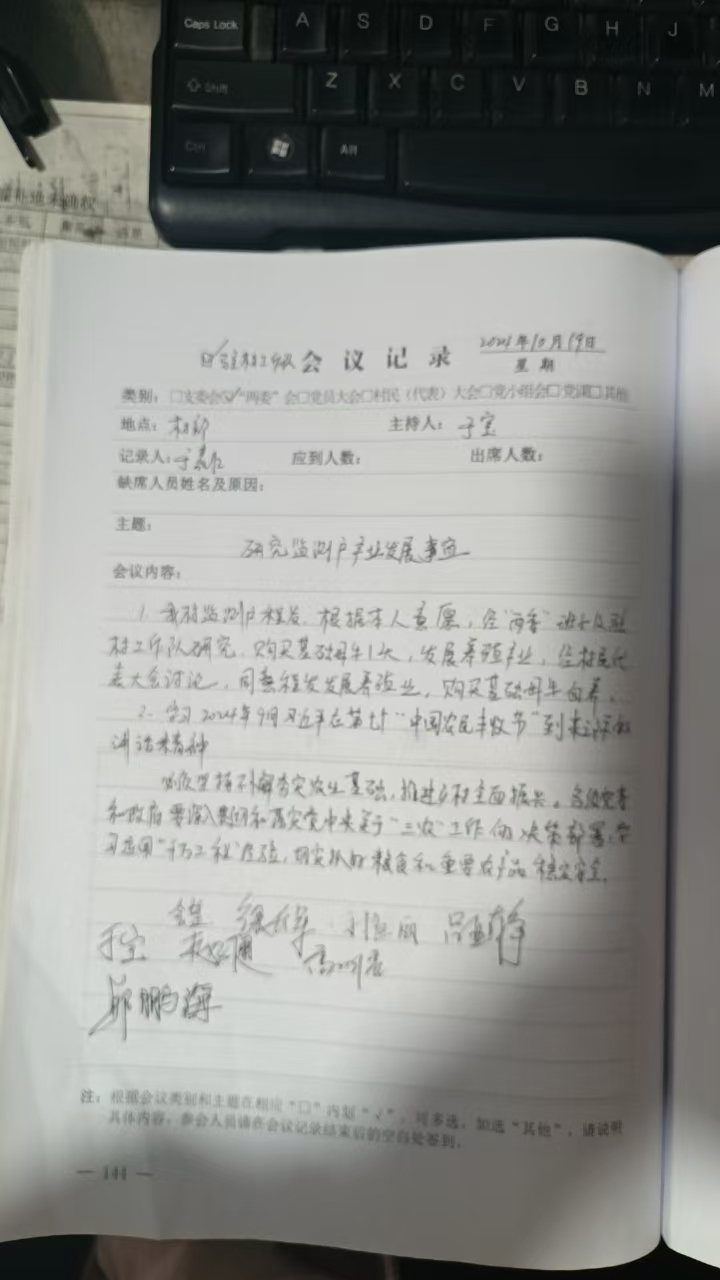 Caps Lock A S D F G H J
Shift Z X C V B N M
Ctrl Alt
☑驻村工作队 会议记录 2024年10月19日
星期
类别：□支委会☑“两委”会□党员大会□村民（代表）大会□党小组会□党课□其他
地点：村部 主持人：于宝
记录人：于 应到人数： 出席人数：
缺席人员姓名及原因：
主题：
研究监测户产业发展事宜
会议内容：
1. 我村监测户程发，根据本人意愿，经“两委”班子及驻
村工作队研究，购买基础母牛1头，发展养殖产业，经村民代
表大会讨论，同意程发发展养殖业，购买基础母牛自养。
2. 学习2024年9月习近平在第七个“中国农民丰收节”到来之际的
讲话精神
必须坚持不懈夯实农业基础，推进乡村全面振兴。各级党委
和政府要深入贯彻和落实党中央关于“三农”工作的决策部署，学
习运用“千万工程”经验，切实抓好粮食和重要农产品稳产保供。
于宝
邱鹏海
注：根据会议类别和主题在相应“□”内划“√”，可多选，如选“其他”，请说明
具体内容，参会人员请在会议记录结束后的空白处签到。
— 144 —